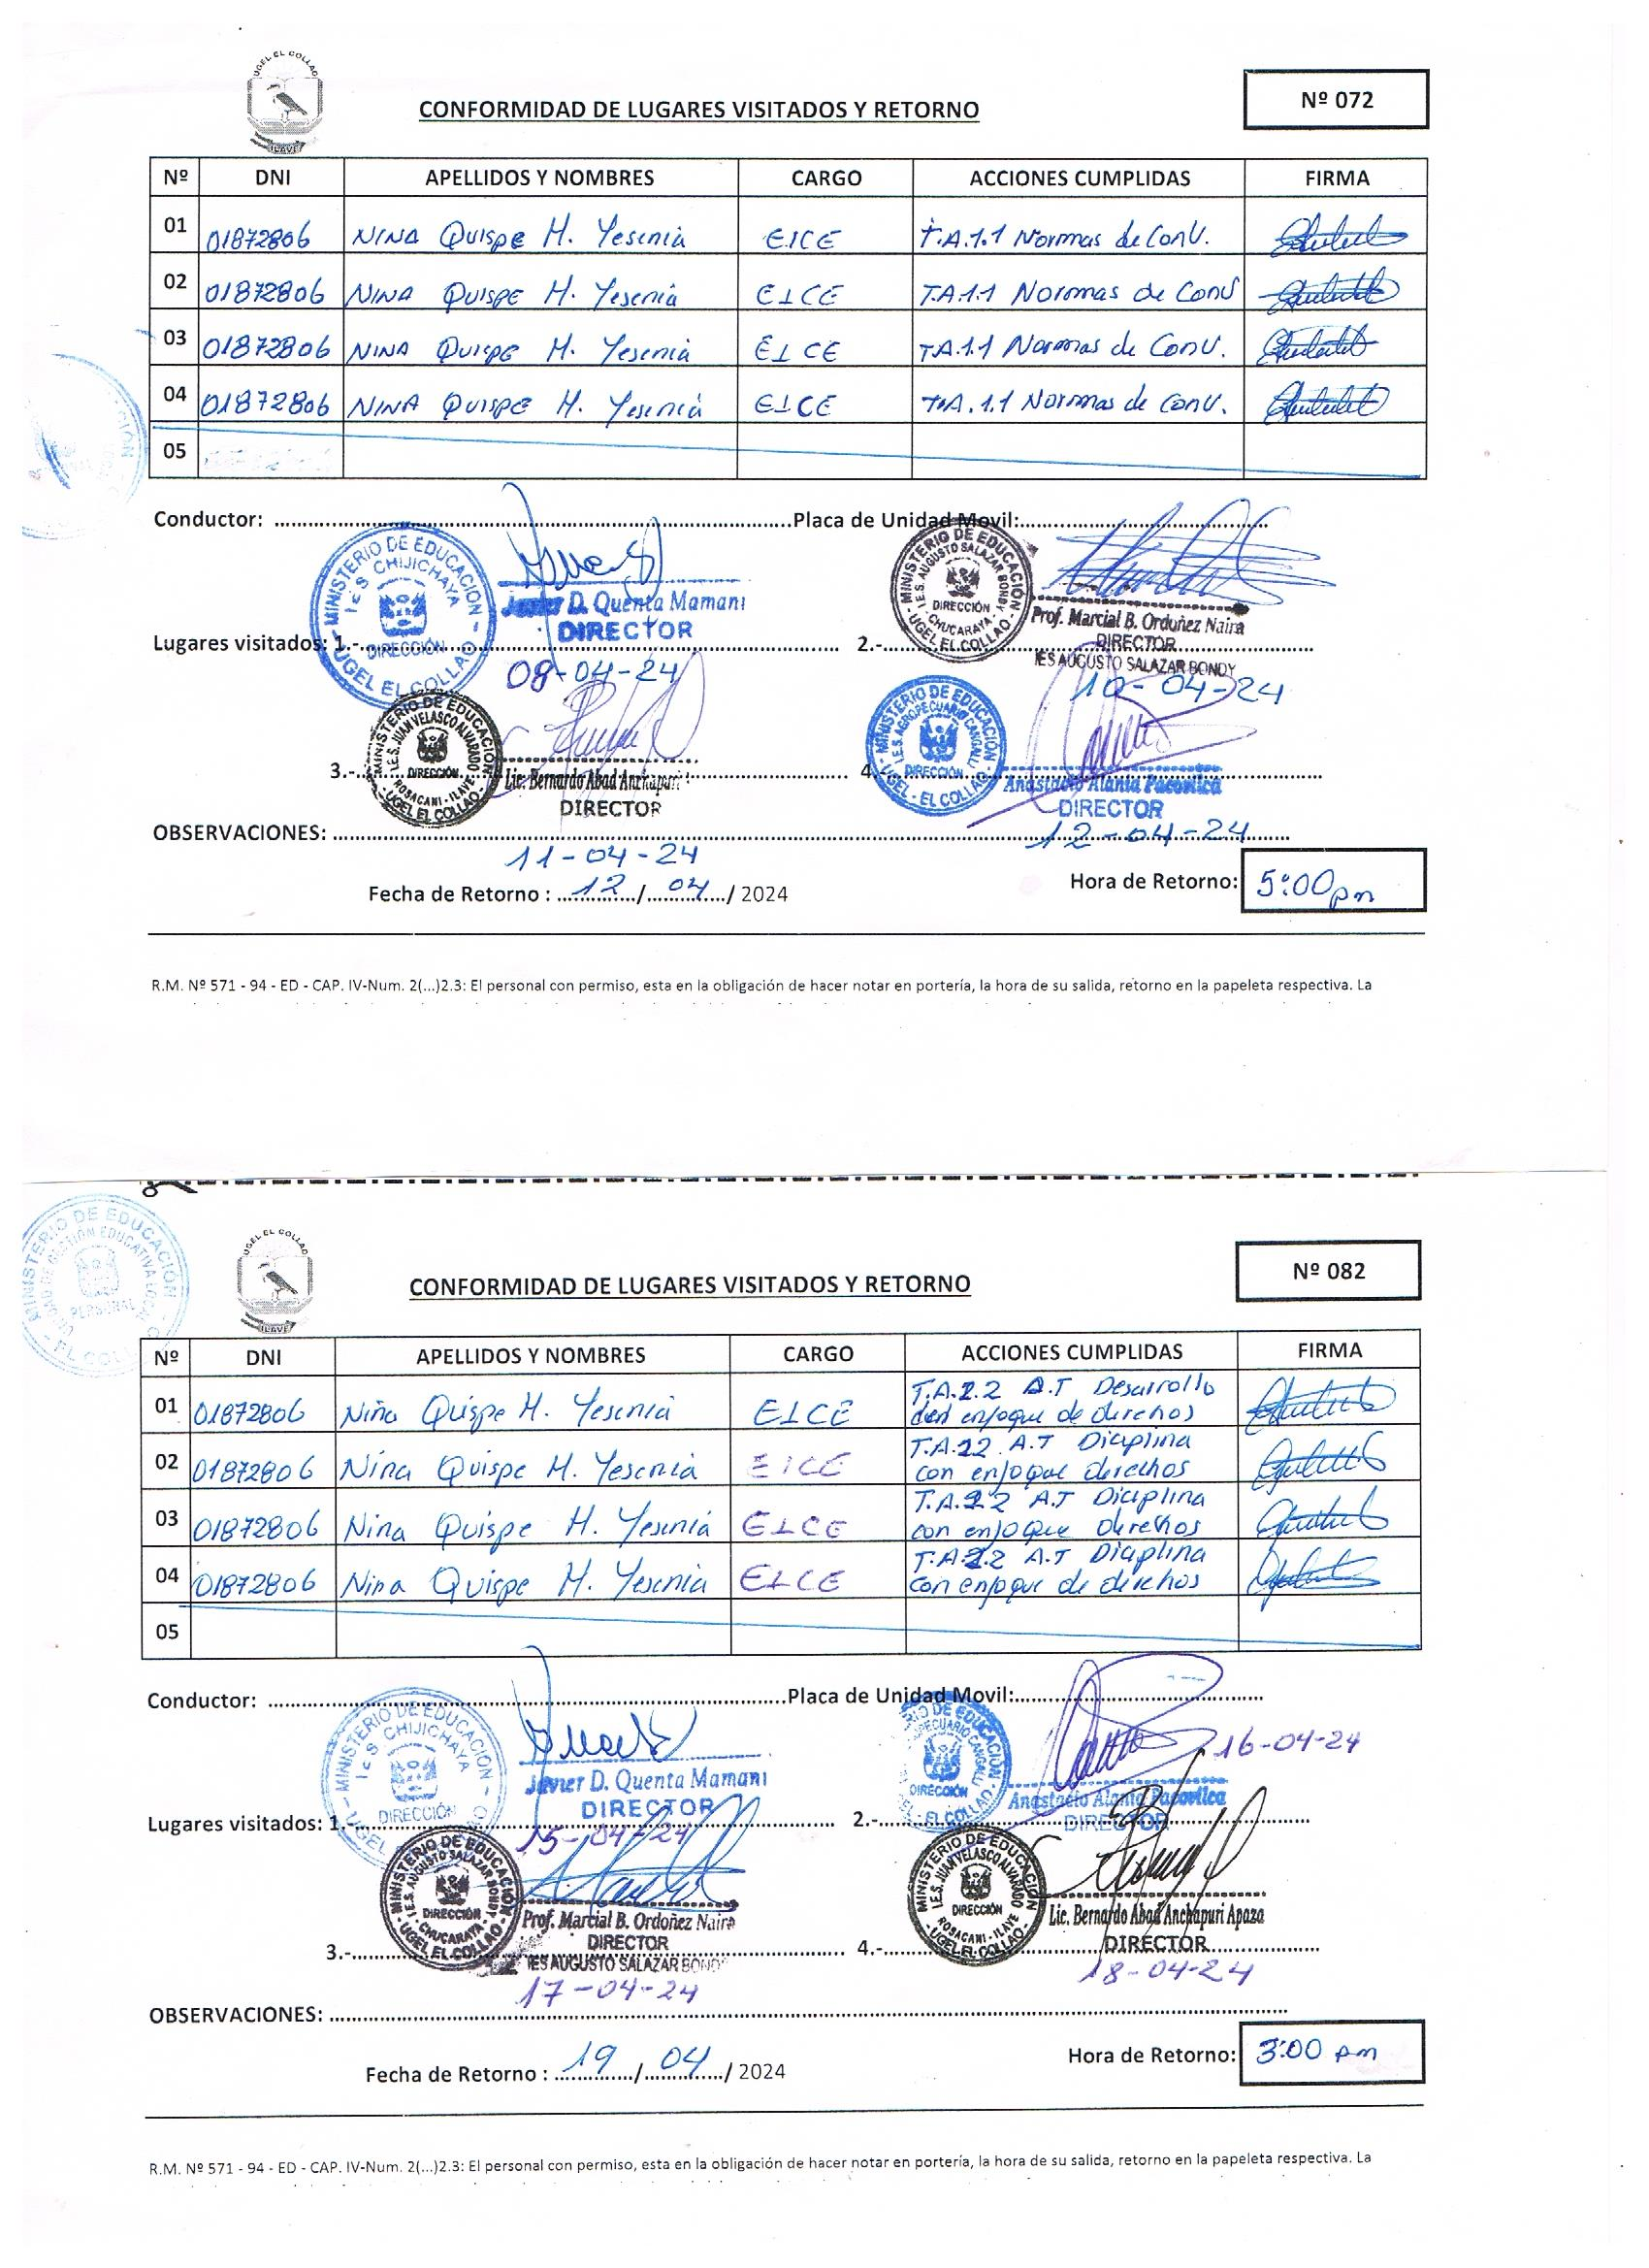 UGEL EL COLLAO
ILAVE
CONFORMIDAD DE LUGARES VISITADOS Y RETORNO
Nº 072
Nº DNI APELLIDOS Y NOMBRES CARGO ACCIONES CUMPLIDAS FIRMA
01 01872806 NINA Quispe M. Yesenia EICE T.A.1.1 Normas de Conv.
02 01872806 NINA QUISPE M. Yesenia EICE T.A.1.1 Normas de Conv
03 01872806 NINA QUISPE M. Yesenia EICE T.A.1.1 Normas de Conv.
04 01872806 NINA QUISPE M. Yesenia EICE T.A.1.1 Normas de Conv.
05
Conductor: Placa de Unidad Movil:
MINISTERIO DE EDUCACIÓN
I E S CHIJICHAYA
DIRECCIÓN
UGEL EL COLLAO
Javier D. Quenta Mamani
DIRECTOR
08-04-24
MINISTERIO DE EDUCACIÓN
I.E.S. AUGUSTO SALAZAR BONDY
DIRECCIÓN
CHUCARAYA
UGEL EL COLLAO
Prof. Marcial B. Ordoñez Naira
DIRECTOR
IES AUGUSTO SALAZAR BONDY
10-04-24
Lugares visitados: 1.- 2.-
MINISTERIO DE EDUCACIÓN
I.E.S. JUAN VELASCO ALVARADO
DIRECCIÓN
ROSACANI - ILAVE
UGEL EL COLLAO
Lic. Bernardo Abad Anchapuri
DIRECTOR
MINISTERIO DE EDUCACIÓN
I.E.S. AGROPECUARIO CANGALLI
DIRECCIÓN
UGEL - EL COLLAO
Anastacio Alania Pacovilca
DIRECTOR
3.- 4.-
OBSERVACIONES:
11-04-24
12-04-24
Fecha de Retorno : 12/ 04/ 2024 Hora de Retorno: 5:00 pm
R.M. Nº 571 - 94 - ED - CAP. IV-Num. 2(...)2.3: El personal con permiso, esta en la obligación de hacer notar en portería, la hora de su salida, retorno en la papeleta respectiva. La
MINISTERIO DE EDUCACIÓN
PERSONAL
EL COLLAO
UGEL EL COLLAO
ILAVE
CONFORMIDAD DE LUGARES VISITADOS Y RETORNO
Nº 082
Nº DNI APELLIDOS Y NOMBRES CARGO ACCIONES CUMPLIDAS FIRMA
01 01872806 Nina Quispe M. Yesenia EICE T.A.2.2 A.T Desarrollo
enfoque de derechos
02 01872806 Nina Quispe M. Yesenia EICE T.A.22 A.T Diciplina
con enfoque derechos
03 01872806 Nina Quispe M. Yesenia EICE T.A.22 A.T Diciplina
con enfoque derechos
04 01872806 Nina Quispe M. Yesenia EICE T.A.2.2 A.T Diciplina
con enfoque de derechos
05
Conductor: Placa de Unidad Movil:
MINISTERIO DE EDUCACIÓN
I E S CHIJICHAYA
DIRECCIÓN
UGEL
Javier D. Quenta Mamani
DIRECTOR
15-04-24
DIRECCIÓN
EL COLLAO
16-04-24
Anastacio Alania Pacovilca
DIRECTOR
Lugares visitados: 1.- 2.-
MINISTERIO DE EDUCACIÓN
I.E.S. AUGUSTO SALAZAR BONDY
DIRECCIÓN
CHUCARAYA
UGEL EL COLLAO
Prof. Marcial B. Ordoñez Naira
DIRECTOR
IES AUGUSTO SALAZAR BONDY
17-04-24
MINISTERIO DE EDUCACIÓN
I.E.S. JUAN VELASCO ALVARADO
DIRECCIÓN
ROSACANI - ILAVE
UGEL EL COLLAO
Lic. Bernardo Abad Anchapuri Apaza
DIRECTOR
18-04-24
3.- 4.-
OBSERVACIONES:
Fecha de Retorno : 19/ 04/ 2024 Hora de Retorno: 3:00 pm
R.M. Nº 571 - 94 - ED - CAP. IV-Num. 2(...)2.3: El personal con permiso, esta en la obligación de hacer notar en portería, la hora de su salida, retorno en la papeleta respectiva. La